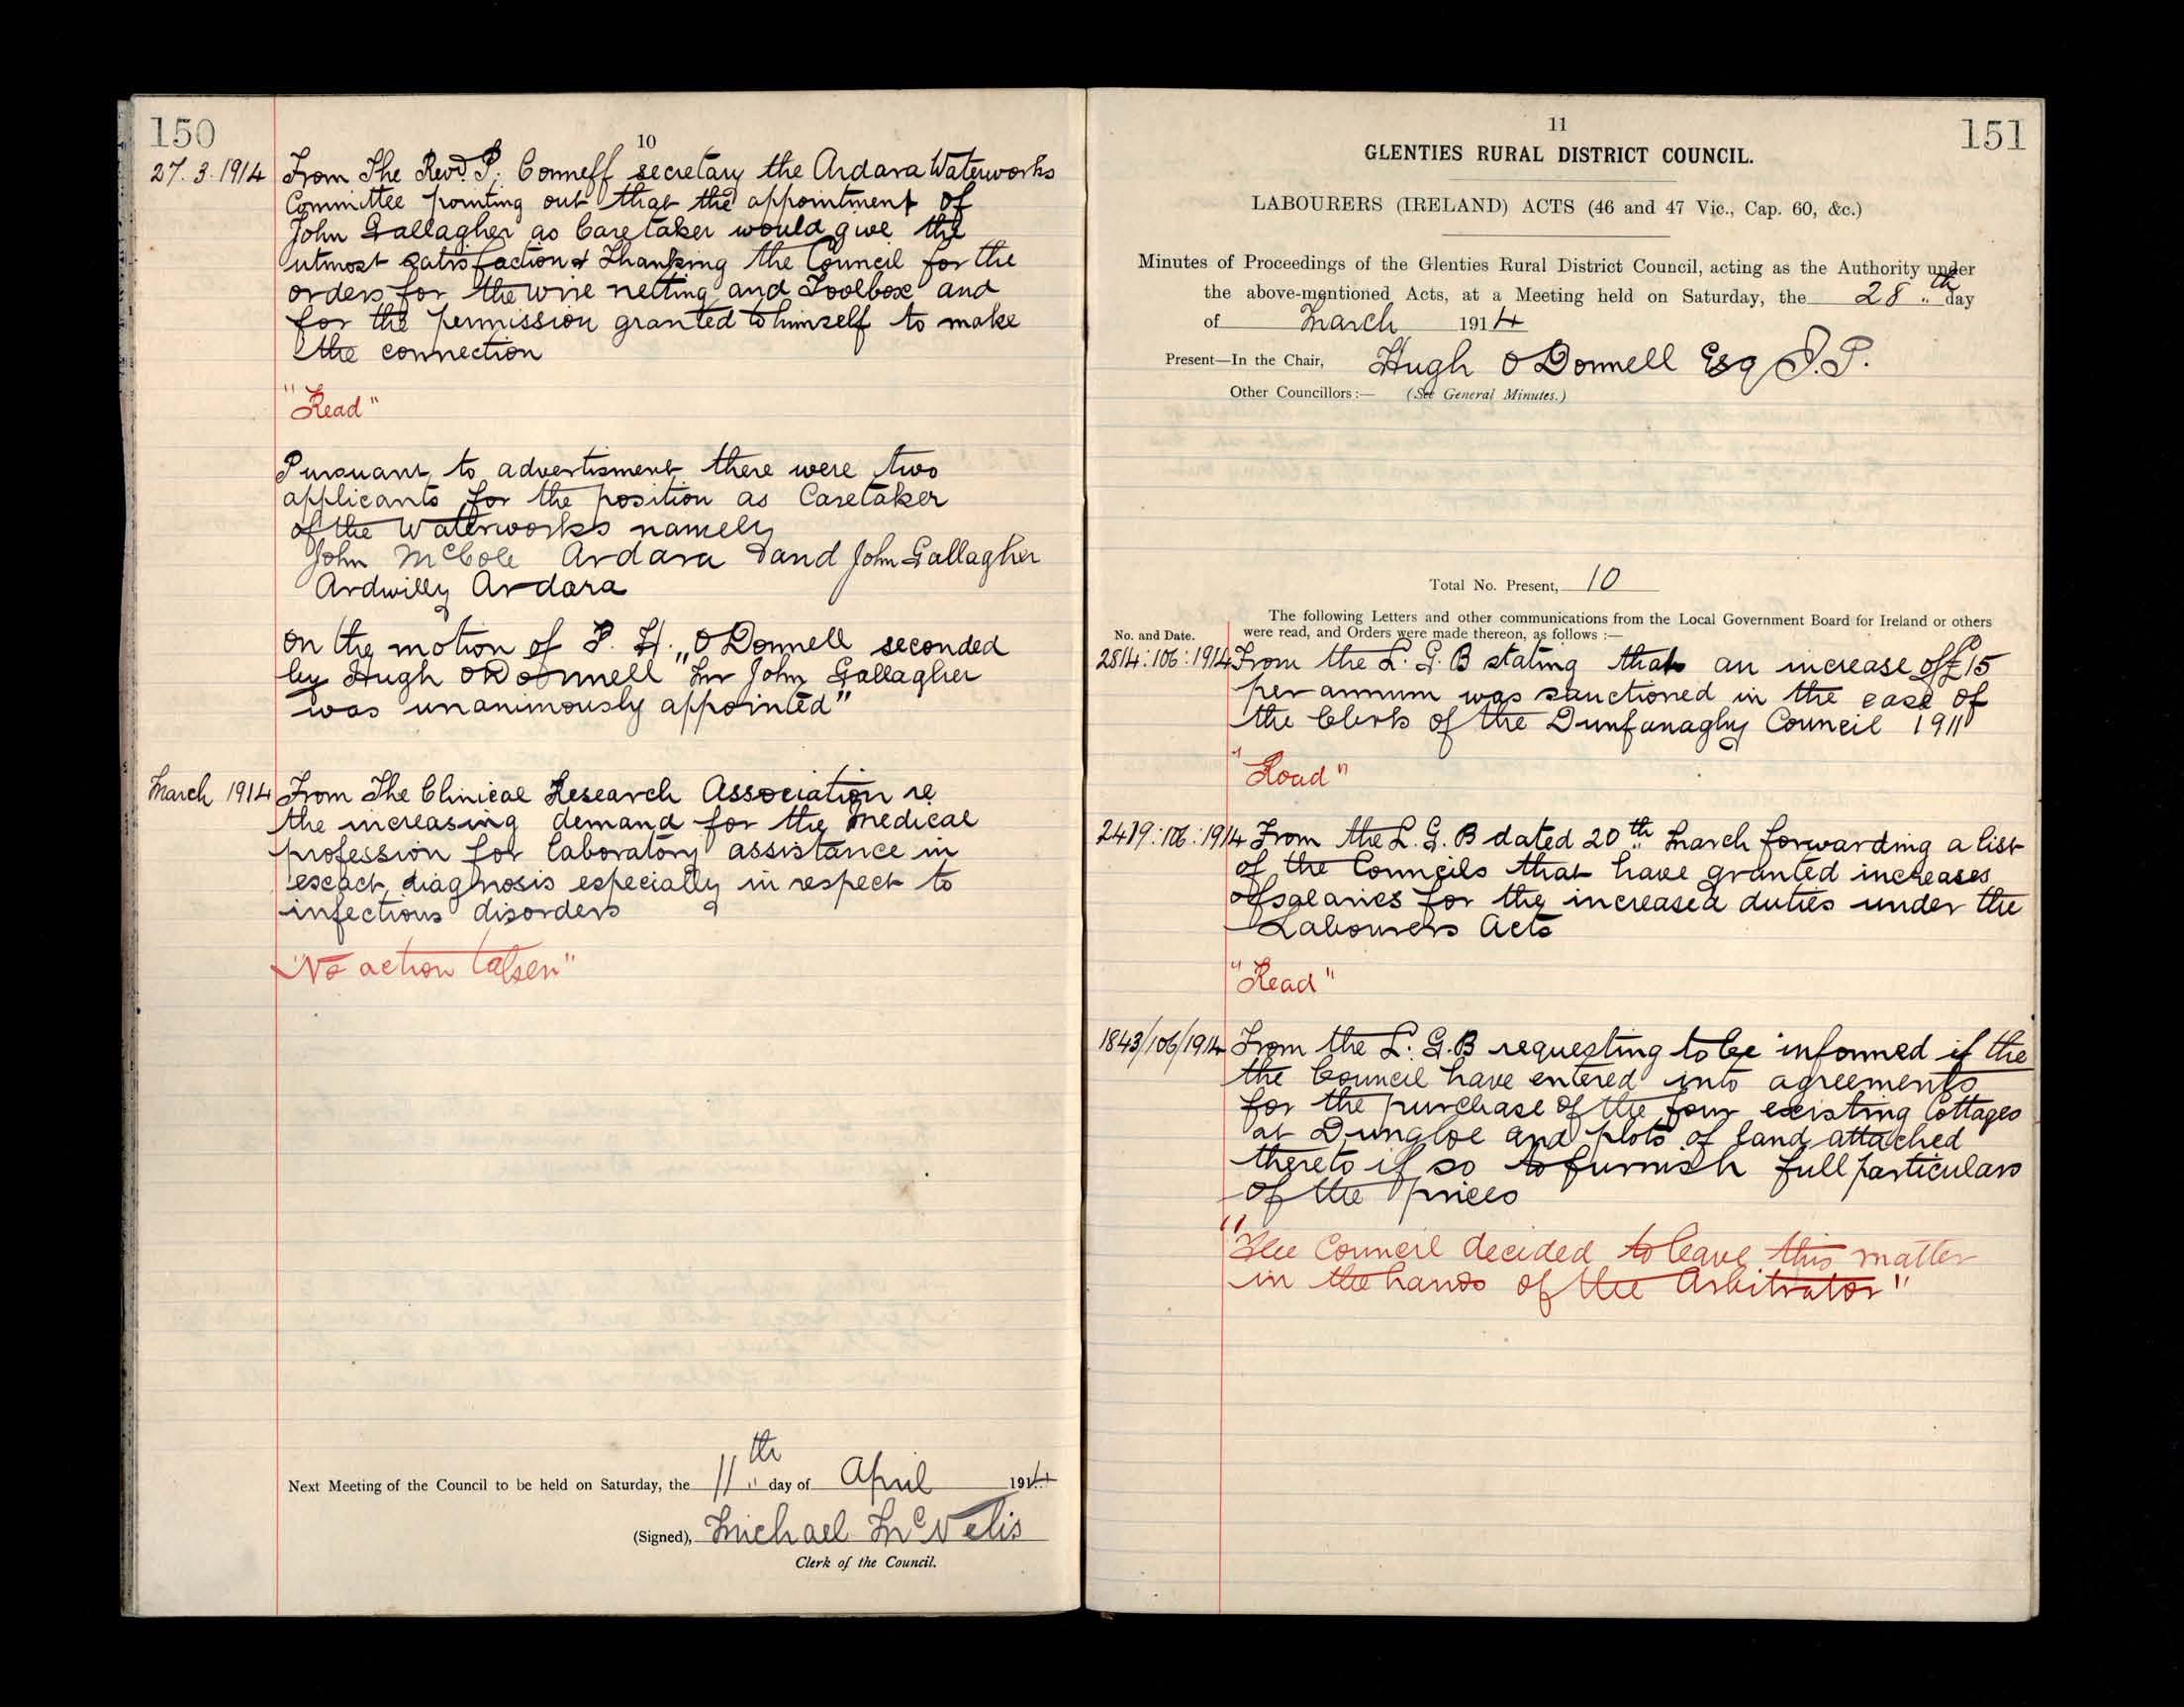 150
10
27.3.1914 From The Revd. P. Conneff secretary the Ardara Waterworks
Committee pointing out that the appointment of
John Gallagher as Caretaker would give the
utmost satisfaction & Thanking the Council for the
orders for the wire netting and Toolbox and
for the permission granted to himself to make
the connection
"Read"
Pursuant to advertisment there were two
applicants for the position as Caretaker
of the Waterworks namely
John McCole Ardara and John Gallagher
Ardwilly Ardara
On the motion of P. H. "O'Donnell seconded
by Hugh O'Donnell Mr John Gallagher
was unanimously appointed"
March 1914 From The Clinical Research Association re
the increasing demand for the medical
profession for laboratory assistance in
exact diagnosis especially in respect to
infectious disorders
"No action taken"
Next Meeting of the Council to be held on Saturday, the 11th day of April 1914
(Signed), Michael McNelis
Clerk of the Council.
11
151
GLENTIES RURAL DISTRICT COUNCIL.
LABOURERS (IRELAND) ACTS (46 and 47 Vic., Cap. 60, &c.)
Minutes of Proceedings of the Glenties Rural District Council, acting as the Authority under
the above-mentioned Acts, at a Meeting held on Saturday, the 28th day
of March 1914
Present—In the Chair, Hugh O'Donnell Esq J.P.
Other Councillors:— (See General Minutes.)
Total No. Present, 10
The following Letters and other communications from the Local Government Board for Ireland or others
No. and Date. were read, and Orders were made thereon, as follows :—
2814:106:1914 From the L. G. B stating that an increase of £15
per annum was sanctioned in the case of
the Clerk of the Dunfanaghy Council 1911
"Read"
2419:106:1914 From the L. G. B dated 20th March forwarding a list
of the Councils that have granted increases
of salaries for the increased duties under the
Labourers Acts
"Read"
1843/106/1914 From the L. G. B requesting to be informed if the
the Council have entered into agreements
for the purchase of the four existing Cottages
at Dungloe and plots of land attached
thereto if so to furnish full particulars
of the prices
"The Council decided to leave this matter
in the hands of the Arbitrator"